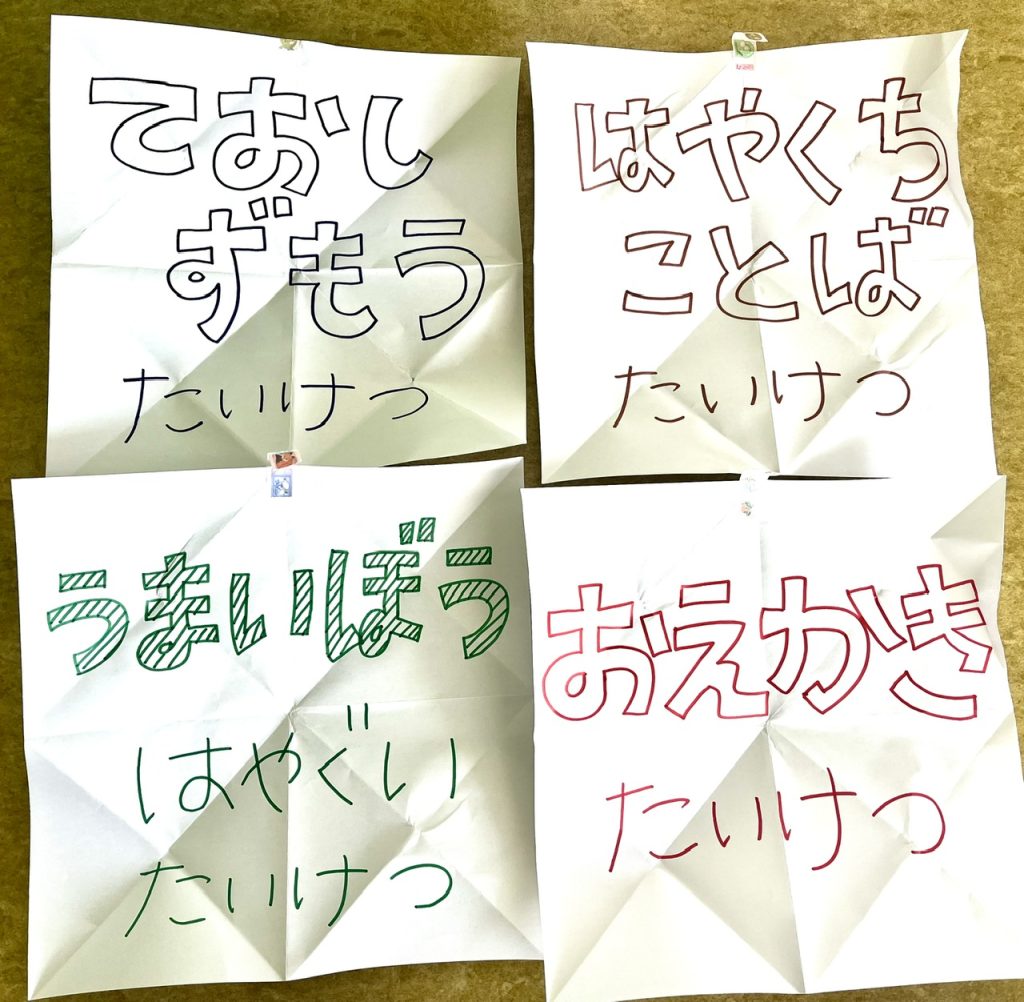 ておし
ずもう
たいけつ
はやくち
ことば
たいけつ
うまいぼう
はやぐい
たいけつ
おえかき
たいけつ